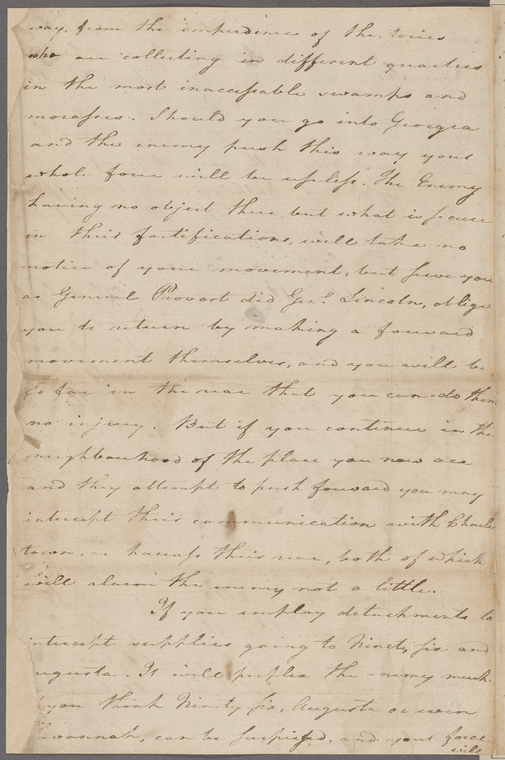 way, from the impudence of the tories
who are collecting in different quarters
in the most inaccessable swamps and
morasses. Should you go into Georgia
and the enemy push this way your
whole force will be useless. The Enemy
having no object there, but what is secure
in their fortifications, will take no
notice of your movement, but serve you
as General Provost did Genl. Lincoln, oblige
you to return by making a forward
movement themselves, and you will be
so far in the rear that you can do them
no injury. But if you continue in the
neighbourhood of the place you now are
and they attempt to push forward you may
intercept their communication with Charles
town, or harrass their rear, both of which
will alarm the enemy not a little.
If you employ detachments to
intercept supplies going to Ninety six and
ugusta. It will perplex the enemy much.
you think Ninety six, Augusta or even
vannah, can be surprised, and your force
will